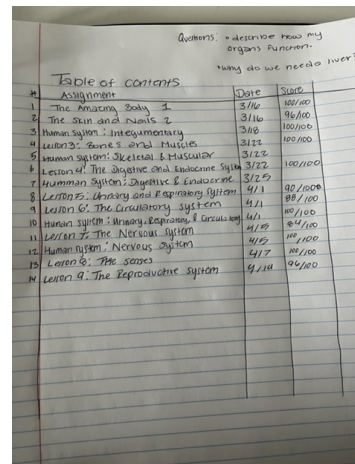 Questions: • describe how my
organs function.
• why do we need a liver?
Table of contents
# Assignment Date Score
1 The Amazing Body 1 3/16 100/100
2 The Skin and Nails 2 3/16 96/100
3 Human system: Integumentary 3/18 100/100
4 Lesson 3: Bones and Muscles 3/22 100/100
5 Human system: Skeletal & Muscular 3/22
6 Lesson 4: The Digestive and Endocrine System 3/22 100/100
7 Humman System: Digestive & Endocrine 3/25
8 Lesson 5: Urinary and Respiratory system 4/1 90/100
9 Lesson 6: The Circulatory system 4/1 88/100
10 Human system: Urinary, Respiratory, & Circulatory 4/1 100/100
11 Lesson 7: The Nervous System 4/5 84/100
12 Human system: Nervous system 4/5 100/100
13 Lesson 8: The senses 4/7 100/100
14 Lesson 9: The Reproductive system 4/14 96/100